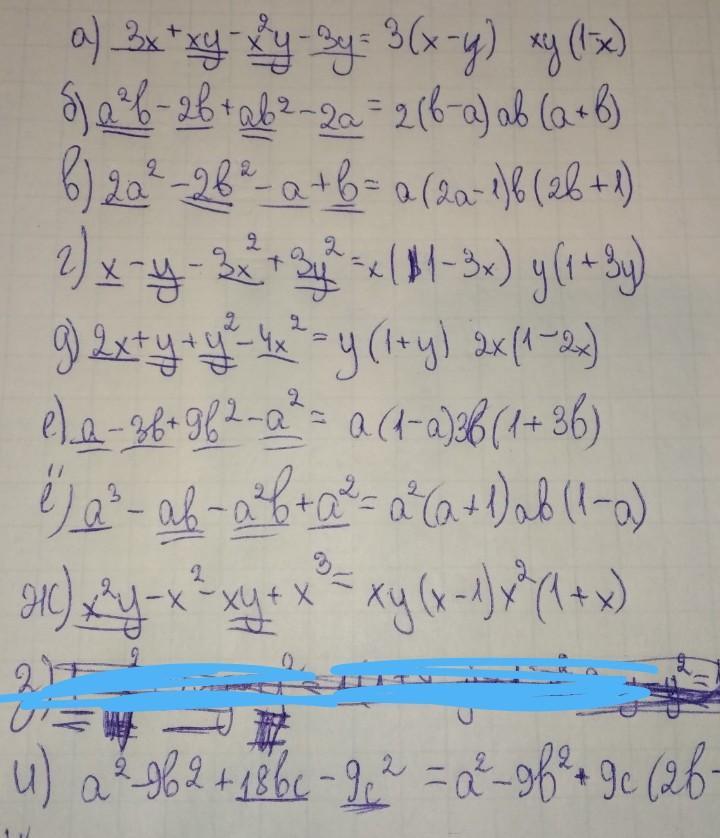 а) 3x + xy - x²y - 3y = 3(x-y) xy(1-x)
б) a²b - 2b + ab² - 2a = 2(b-a) ab (a+b)
в) 2a² - 2b² - a + b = a(2a-1)b(2b+1)
г) x - y - 3x² + 3y² = x(1-3x) y(1+3y)
д) 2x + y + y² - 4x² = y(1+y) 2x(1-2x)
е) a - 3b + 9b² - a² = a(1-a)3b(1+3b)
ё) a³ - ab - a²b + a² = a²(a+1)ab(1-a)
ж) x²y - x² - xy + x³ = xy(x-1)x²(1+x)
з)
и) a² - 9b² + 18bc - 9c² = a² - 9b² + 9c(2b-